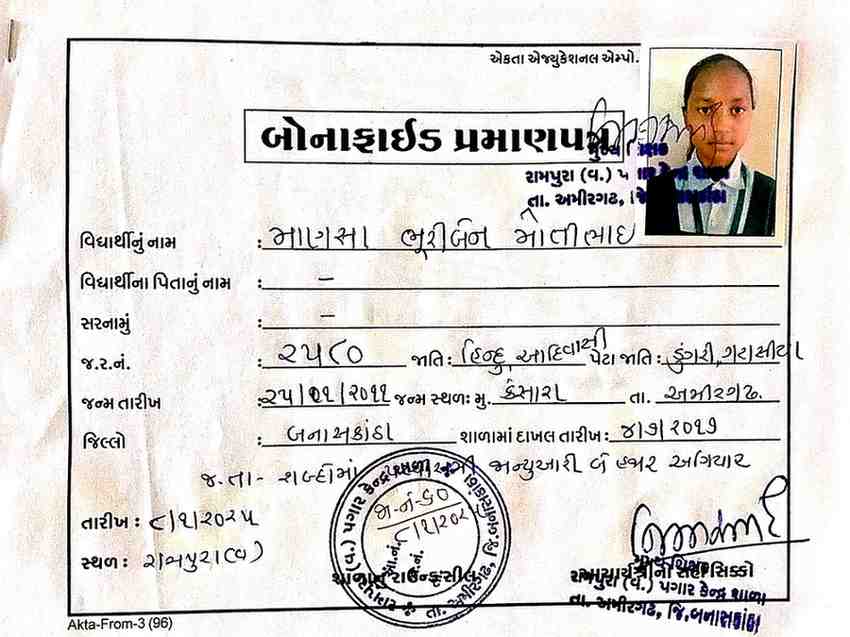 એકતા એજ્યુકેશનલ એમ્પો.
બોનાફાઈડ પ્રમાણપત્ર
રામપુરા (વ.) પગાર કેન્દ્ર શાળા
તા. અમીરગઢ,
વિદ્યાર્થીનું નામ : માણસા ભૂરીબેન મોતીભાઇ
વિદ્યાર્થીના પિતાનું નામ : –
સરનામું : –
જ.ર.નં. : ૨૫૮૦ જાતિ : હિન્દુ, આદિવાસી પેટા જાતિ : ડુંગરી, ગરાસીયા
જન્મ તારીખ : ૨૫/૦૧/૨૦૧૧ જન્મ સ્થળ: મુ. કેસારા તા. અમીરગઢ.
જિલ્લો : બનાસકાંઠા શાળામાં દાખલ તારીખ : ૪/૭/૨૦૧૭
જ.તા - શબ્દોમાં જાન્યુઆરી બે હજાર અગિયાર
જા.નં. ૬૦
૮/૧/૨૦૨૫
તારીખ : ૮/૧/૨૦૨૫
સ્થળ : રામપુરા(વ)
શાળાનું રાઉન્ડ સીલ
આચાર્યશ્રીની સહી સિક્કો
રામપુરા (વ.) પગાર કેન્દ્ર શાળા
તા. અમીરગઢ, જિ.બનાસકાંઠા
Akta-From-3 (96)